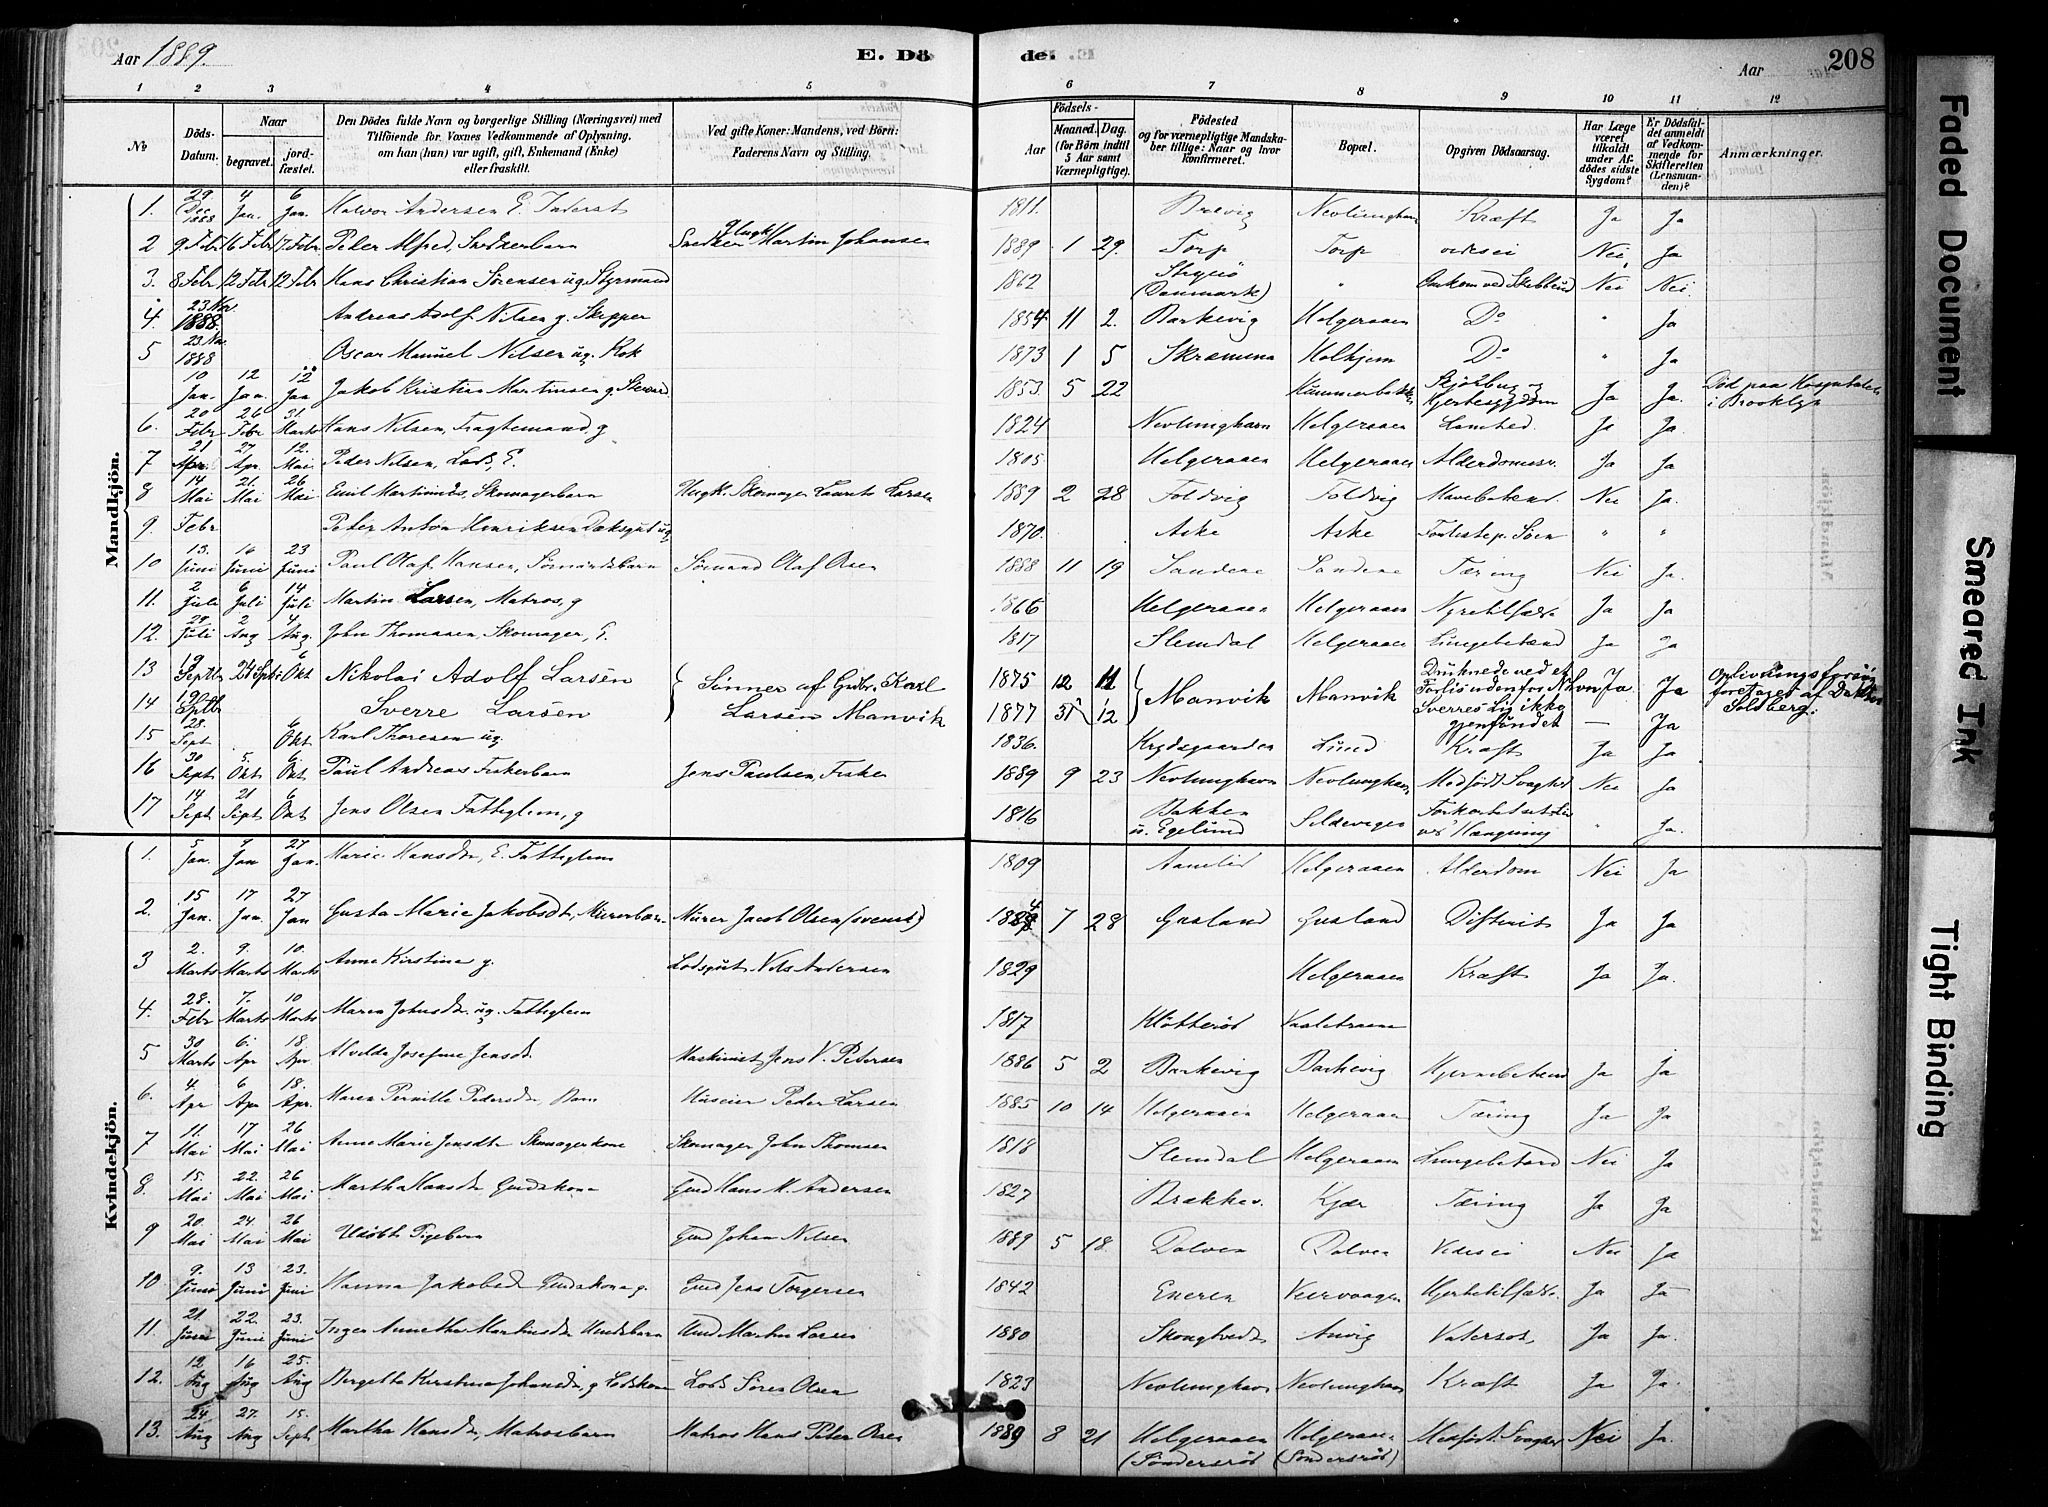 Aar 1889. E. Döde. Aar 208
1 2 3 4 5 6 7 8 9 10 11 12
No Döds-Datum. Naar begravet. jordfæstet. Den Dödes fulde Navn og borgerlige Stilling (Næringsvei) med Tilföiende for Voxnes Vedkommende af Oplysning, om han (hun) var ugift, gift, Enkemand (Enke) eller fraskilt. Ved gifte Koner: Mandens, ved Börn: Faderens Navn og Stilling. Födsels- Aar Maaned. Dag. (for Börn indtil 5 Aar samt Værnepligtige). Födested og for værnepligtige Mandskaber tillige: Naar og hvor konfirmeret. Bopæl. Opgiven Dödsaarsag. Har Læge været tilkaldt under Afdödes sidste Sygdom? Er Dödsfaldet anmeldt af Vedkommende for Skifteretten (Lensmanden)? Anmærkninger.
Mandkjön.
1. 29 Dec 1888 4 Jan. 6 Jan. Halvor Andersen E. Inderst 1811. Brevig Nevlunghavn Kræft Ja Ja
2 9 Febr 16 Febr 17 Febr Peter Alfred, Snedkerbarn Snedker Martin Johansen 1889 1 29. Torp Torp Nei Ja
3. 8 Febr 12 Febr 12 Febr Hans Christian Sörensen ug. Styrmand 1862 (Danmark) " Omkom ved Skibbrud Nei Nei.
4. 23 Nov. 1888. Andreas Adolf Nilsen g. Skipper 1854 11 2. Barkevig Helgeraaen Do " Ja
5 23 Nov 1888 Oscar Manuel Nilsen ug. Kok 1873 1 5 Skramma Holhjem Do " Ja
10 Jan. 12 Jan. 12 Jan Jakob Kristian Martinsen g. Steward 1853 5 22 Skjörbug og Hjertesygdom Ja Ja. Död paa Hospitalet i Brooklyn
6. 20 Febr 26 Febr 31. Marts Hans Nilsen, Fragtemand g 1824 Nevlunghavn Helgeraaen Lamhed Ja Ja.
7 21 Apr. 27 Apr. 12. Mai Peder Nilsen, Lods, E. 1805 Helgeraaen Helgeraaen Alderdomssv. Ja Ja
8 14 Mai 21. Mai 26 Mai Emil Martinius, Skomagerbarn Ungk. Skomager Laurits Larsen 1889 2 28 Foldvig Foldvig Mavebetænd. Nei Ja.
9. Febr Peter Anton Henriksen Dæksgut ug 1870. Aske Aske Forlist p. Söen " "
10 13. Juni 16 Juni 23 Juni Paul Olaf Hansen, Sömandsbarn Sömand Olaf Olsen 1888 11 19 Sandene Sandene Tæring Nei Ja.
11. 2 Juli 6 Juli 14 Juli Martin Larsen, Matros, g 1866 Helgeraaen Helgeraaen Nyretilfælde Ja Ja
12. 29 Juli 2 Aug 4 Aug. John Thomassen, Skomager, E. 1817 Slemdal Helgeraaen Lungebetænd Ja Ja
13 19 Septbr 24 Sept. 6 Okt Nikolai Adolf Larsen } Sönner af Gdbr. Karl 1875 12 11 Manvik Manvik Druknede ved et Forlis udenfor Nhvn Ja Ja Oplivningsforsög foretaget af Doktor Solberg.
14 19 Sptbr Sverre Larsen Larsen Manvik 1877 12 Sverres Lig ikke gjenfundet — Ja
15 28. Sept 6 Okt Karl Thoresen ug. 1836. Krydsgaarden Lund Kræft Ja Ja
16 30 Sept 5. Okt 6 Okt. Paul Andreas Fiskerbarn Jens Paulsen, Fisker 1889 9 23 Nevlunghavn Nevlunghavn Medfödt Svaghed Nei Ja
17 14 Sept 21 Sept 6 Okt Jens Olsen Fattiglem, g 1816 Bakken u. Egelund Forkortet sit Liv ved Hængning " Ja.
Kvindekjön.
1. 5 Jan. 9 Jan 27 Jan. Marie Hansdr., E. Fattiglem 1809 Aamlid Helgeraaen Alderdom Nei Ja
2. 15 Jan. 17 Jan. 27 Jan Gusta Marie Jakobsdt., Murerbarn Murer Jacob Olsen (svensk) 1884 7 28 Gusland Gusland Difterit Ja Ja
3 2. Marts 9. Marts 10. Marts Anne Kirstine g. Lodsgut Nils Andersen 1829 Helgeraaen Kræft Ja Ja.
4. 28. Febr 7. Marts 10 Marts Maren Johnsdr. ug. Fattiglem 1817 Klötteröd
5 30 Marts 6. Apr 18. Apr. Alvilda Josefine Jensdt. Maskinist Jens V. Petersen 1886 5 2 Barkevig Barkevig Hjernebetænd Ja Ja
6. 4. Apr 6 Apr 18. Apr. Maren Pernille Pedersdr., Barn Huseier Peder Larsen 1885 10 14 Helgeraaen Helgeraaen Tæring Ja Ja
7 11. Mai 17 Mai 26 Mai Anne Marie Jensdt. Skomagerkone Skomager John Thomsen 1818 Slemdal Helgeraaen Lungebetænd Nei Ja
8. 15. Mai 22. Mai 26 Mai Martha Hansdr. Gmdskone Gmd Hans M. Andersen 1827 Brækkes. Kjær Tæring Ja Ja
9 20. Mai 24. Mai 26 Mai Udöbt Pigebarn Gmd Johan Nilsen 1889 5 18. Dolven Dolven Nei Ja
10 9. Juni 13 Juni 23. Juni Hanna Jakobsd Gmdskone g. Gmd Jens Torgersen 1842 Eneren Veiervaagen Hjertetilfælde. Ja Ja
11. 21. Juni 22. Juni 23. Juni Inger Annetha Martinsdr Gmdsbarn Gmd Martin Larsen 1880 Skougtvedt Anvig Vatersot, Ja Ja.
12. 12 Aug 16 Aug 25. Aug Bergetta Kirstine Johansdr, g Lodskone Lods Sören Olsen 1823 Nevlunghavn Nevlunghavn Kræft Ja Ja.
13. 24. Aug 27. Aug 15. Sept. Martha Hansdr, Matrosbarn Matros Hans Peter Olsen 1889 8 21 Helgeraaen (Söndersröd) Helgeraaen (Söndersröd) Medfödt Svaghed Nei Ja.
Faded Document
Smeared Ink
Tight Binding